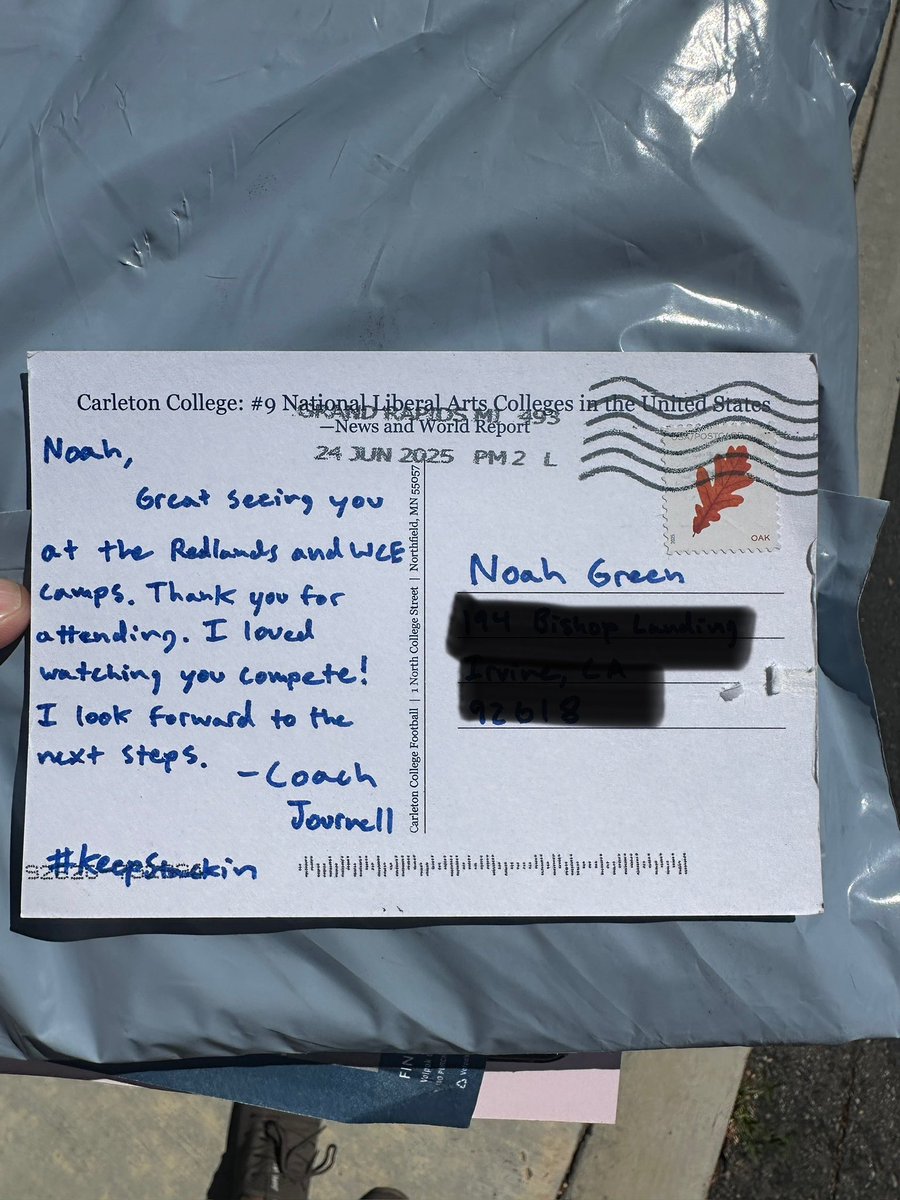 Carleton College: #9 National Liberal Arts Colleges in the United States
—News and World Report
GRAND RAPIDS MI 493
24 JUN 2025 PM 2 L
Noah,
Great seeing you
at the Redlands and WCE
camps. Thank you for
attending. I loved
watching you compete!
I look forward to the
next steps.
-Coach
Journell
#keepstackin
Carleton College Football | 1 North College Street | Northfield, MN 55057
OAK
Noah Green
FIN